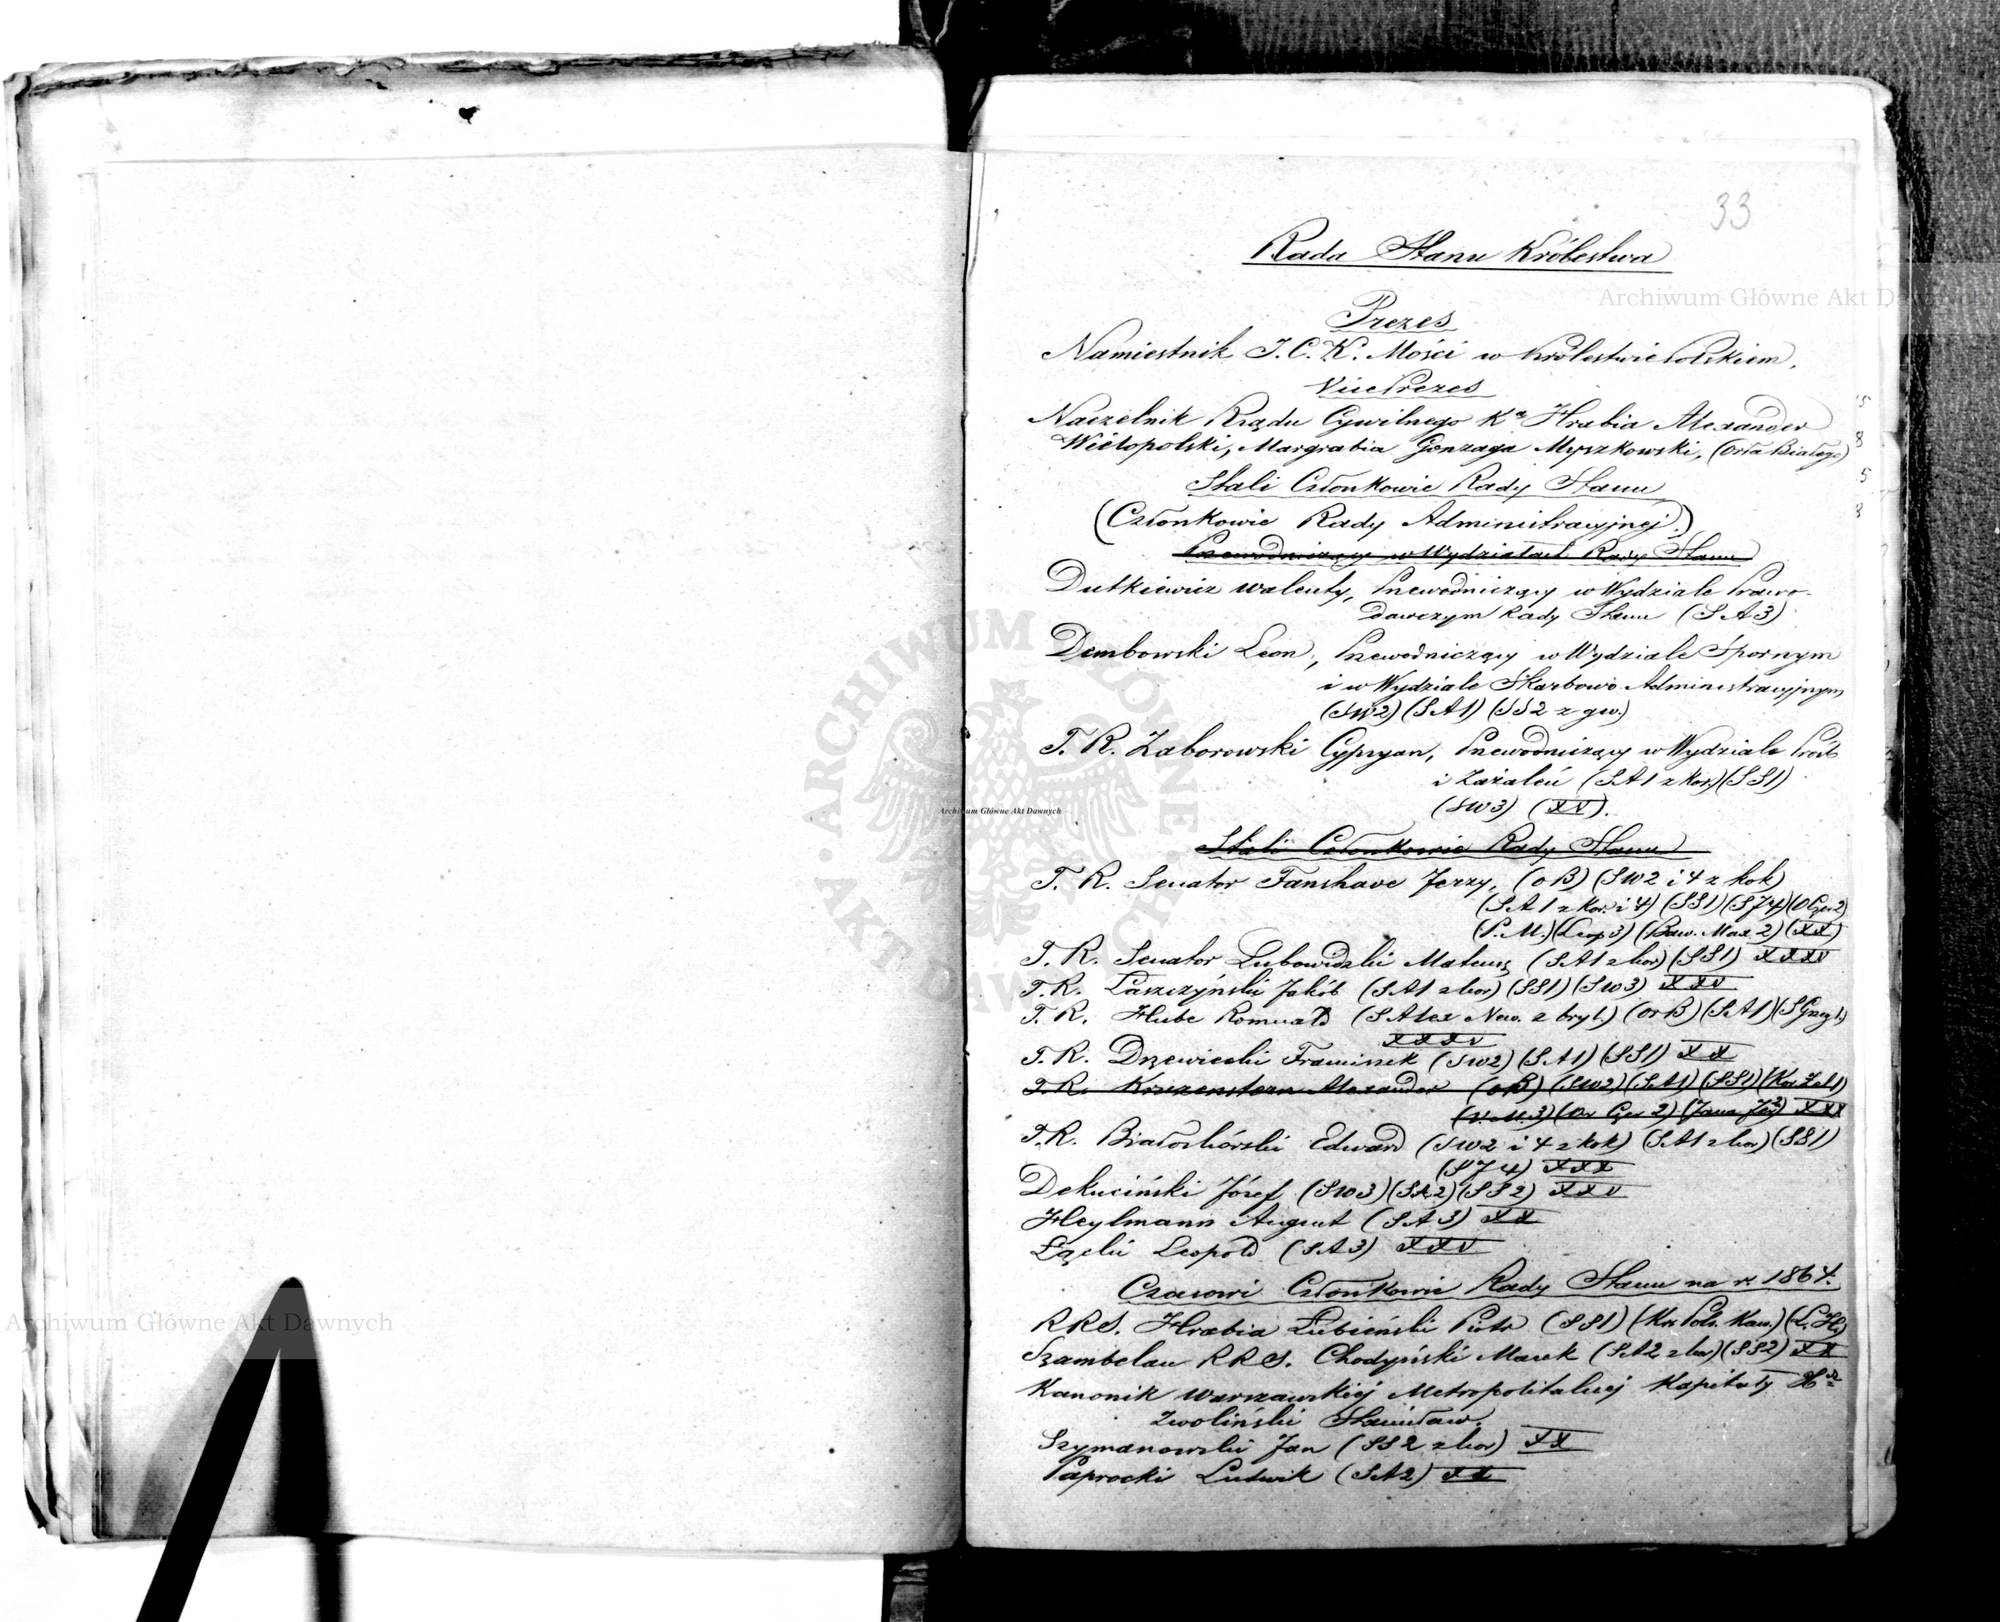 33
Rada Stanu Królestwa
Prezes
Namiestnik J. C. K. Mości w Królestwie Polskiem,
Vice Prezes
Naczelnik Rządu Cywilnego Kr Hrabia Alexander
Wielopolski, Margrabia Gonzaga Myszkowski, (Orła Białego)
Stali Członkowie Rady Stanu
(Członkowie Rady Administracyjnej.)
Przewodniczący w Wydziałach Rady Stanu
Dutkiewicz Walenty, Przewodniczący w Wydziale Prawo-
dawczym Rady Stanu (SA3)
Dembowski Leon, Przewodniczący w Wydziale Spornym
i w Wydziale Skarbowo Administracyjnym,
(SW2) (SA1) (SS2 z gw.)
T. R. Zaborowski Cypryan, Przewodniczący w Wydziale Próśb
i Zażaleń (SA1 z kor) (SS1)
(SW3) (XV).
Stali Członkowie Rady Stanu
T. R. Senator Fanshave Jerzy, (OB) (SW2 i 4 z kok)
(SA1 z Kor. i 4) (SS1) (SJ4)
(P.M.) (Leop 3) (Baw. Max. 2) (XX)
T. R. Senator Lubowidzki Mateusz (SA1 z kor) (SS1) XXXV
T. R. Łaszczyński Jakób (SA1 z kor) (SS1) (SW3) XXV
T. R. Hube Romuald (SAlex New. z bryl.) (OrB) (SA1)
XXXV
T. R. Drzewiecki Franciszek (SW2) (SA1) (SS1) XX
T. R. Kruzenstern Alexander (OB) (SW2) (SA1) (SS1) (Kor. Żel 1)
XXX
T. R. Białoskórski Edward (SW2 i 4 z kok) (SA1 z kor) (SS1)
(SJ4) XXX
Dekuciński Józef (SW3) (SA2) (SS2) XXV
Heylmann August (SA3) XX
Łącki Leopold (SA3) XXV
Czasowi Członkowie Rady Stanu na r. 1864.
RRS. Hrabia Łubieński Piotr (SS1) (Kr. Pols. Kaw.) (L. H.)
Szambelan RRS. Chodyński Marek (SA2 z kor) (SS2) XX
Kanonik Warszawskiej Metropolitalnej Kapituły Xdz
Zwoliński Stanisław.
Szymanowski Jan (SS2 z kor) XX
Paprocki Ludwik (SA2) XX
Archiwum Główne Akt Dawnych
Archiwum Główne Akt Dawnych
Archiwum Główne Akt Dawnych
ARCHIWUM GŁÓWNE AKT DAWNYCH